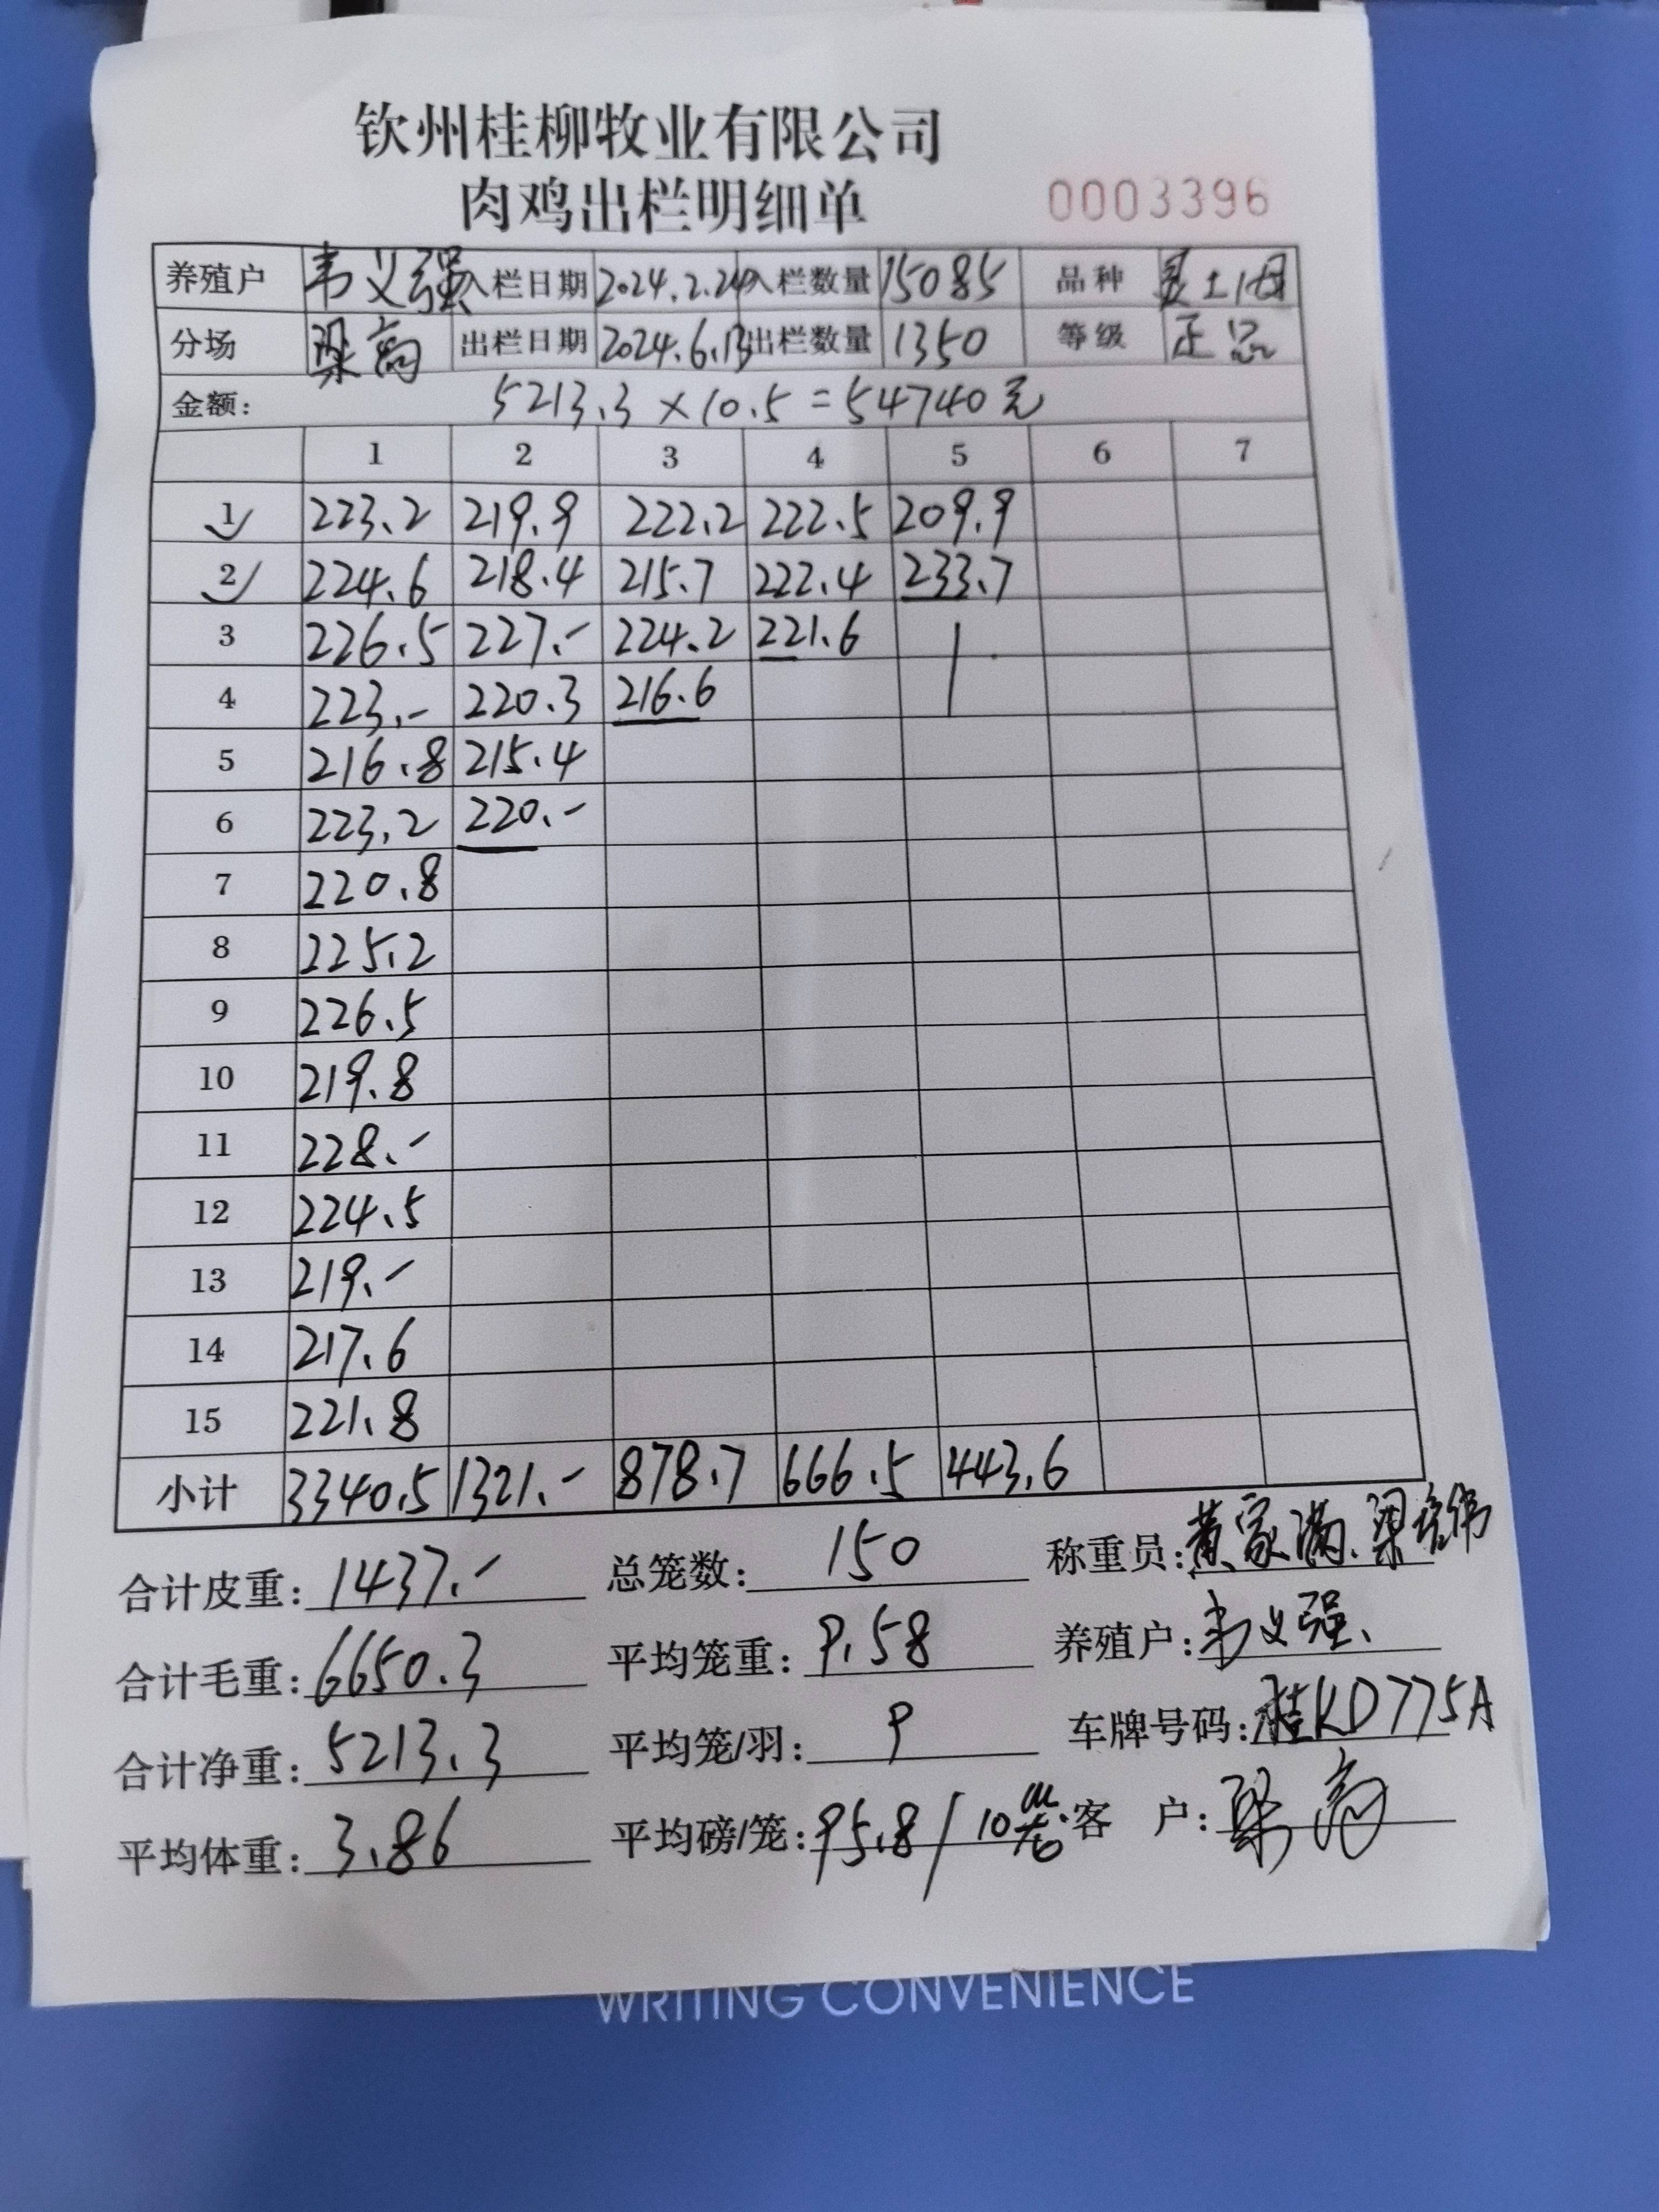 钦州桂柳牧业有限公司
肉鸡出栏明细单 0003396
养殖户 韦义强 入栏日期 2024.2.24 入栏数量 15085 品种 土1母
分场 梁高 出栏日期 2024.6.13 出栏数量 1350 等级 正品
金额: 5213.3×10.5=54740元
1 2 3 4 5 6 7
1 223.2 219.9 222.2 222.5 209.9
2 224.6 218.4 215.7 222.4 233.7
3 226.5 227.- 224.2 221.6
4 223.- 220.3 216.6
5 216.8 215.4
6 223.2 220.-
7 220.8
8 225.2
9 226.5
10 219.8
11 228.-
12 224.5
13 219.-
14 217.6
15 221.8
小计 3340.5 1321.- 878.7 666.5 443.6
合计皮重: 1437.- 总笼数: 150 称重员: 黄家满、梁
合计毛重: 6650.3 平均笼重: 9.58 养殖户: 韦义强、
合计净重: 5213.3 平均笼/羽: 9 车牌号码: 桂KD775A
平均体重: 3.86 平均磅/笼: 95.8/10 客 户: 梁高
WRITING CONVENIENCE